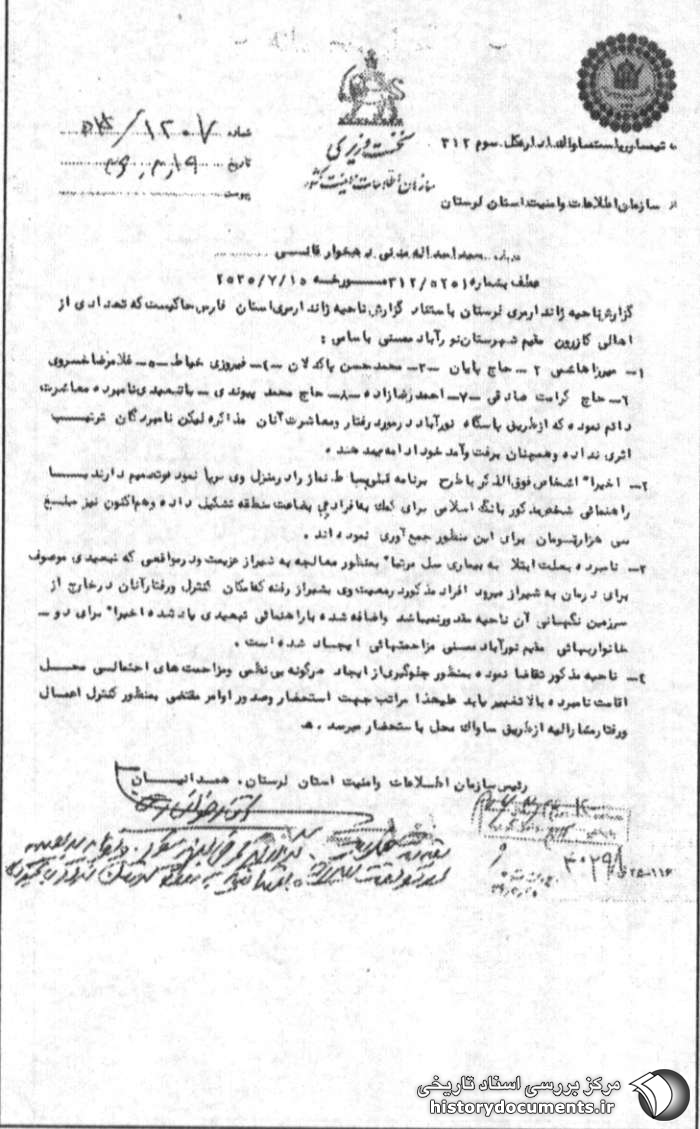 شماره ۱۲۰۷/ ۵ﻫ
تاریخ
پیوست
نخست وزیری
سازمان اطلاعات و امنیت کشور
به تیمسار ریاست ساواک اداره کل سوم ۳۱۲
از سازمان اطلاعات و امنیت استان لرستان
درباره سید اسداله مدنی دهخوارقانی
عطف بشماره ۳۱۲/۵۲۵۱ مورخه ۲۵۳۵/۷/۱۵
گزارش ناحیه ژاندارمری لرستان باستناد گزارش ناحیه ژاندارمری استان فارس حاکیست که تعدادی از
اهالی کازرون مقیم شهرستان نورآباد ممسنی باسامی :
۱- میرزا هاشمی ۲- حاج بابان ۳- محمد حسن پاکدلان ۴- فیروزی خیاط ۵- غلامرضا خسروی
۶- حاج کرامت صادقی ۷- احمد رضازاده ۸- حاج محمد پیوندی - با تبعیدی نامبرده معاشرت
دائم نموده که از طریق پاسگاه نورآباد در مورد رفتار و معاشرت آنان مذاکره لیکن نامبردگان ترتیب
اثری نداده و همچنان برفت و آمد خود ادامه میدهند .
۲- اخیرا" اشخاص فوق الذکر با طرح برنامه قبلی بساط نماز را در منزل وی برپا نموده و تصمیم دارند با
راهنمائی شخص مذکور بانک اسلامی برای کمک به افراد بی بضاعت منطقه تشکیل داده و هم اکنون نیز مبلغ
سی هزار تومان برای این منظور جمع آوری نموده اند .
۳- نامبرده بعلت ابتلا به بیماری سل مرتبا" بمنظور معالجه به شیراز عزیمت و در مواقعی که تبعیدی موصوف
برای درمان به شیراز میرود افراد مذکور در معیت وی بشیراز رفته که امکان کنترل رفتار آنان در خارج از
سرزمین نگهبانی آن ناحیه مقدور نمیباشد و اضافه شده با راهنمائی تبعیدی یاد شده اخیرا" برای دو -
خانوار بهائی مقیم نورآباد ممسنی مزاحمتهائی ایجاد شده است .
۴- ناحیه مذکور تقاضا نموده بمنظور جلوگیری از ایجاد هرگونه بی نظمی و مزاحمت های احتمالی محل
اقامت نامبرده بالا تغییر یابد علیهذا مراتب جهت استحضار و صدور اوامر مقتضی بمنظور کنترل اعمال
و رفتار مشارالیه از طریق ساواک محل باستحضار میرسد . هـ
رئیس سازمان اطلاعات و امنیت استان لرستان . همدانیان
۲۵-۱۱۶
مرکز بررسی اسناد تاریخی
historydocuments.ir